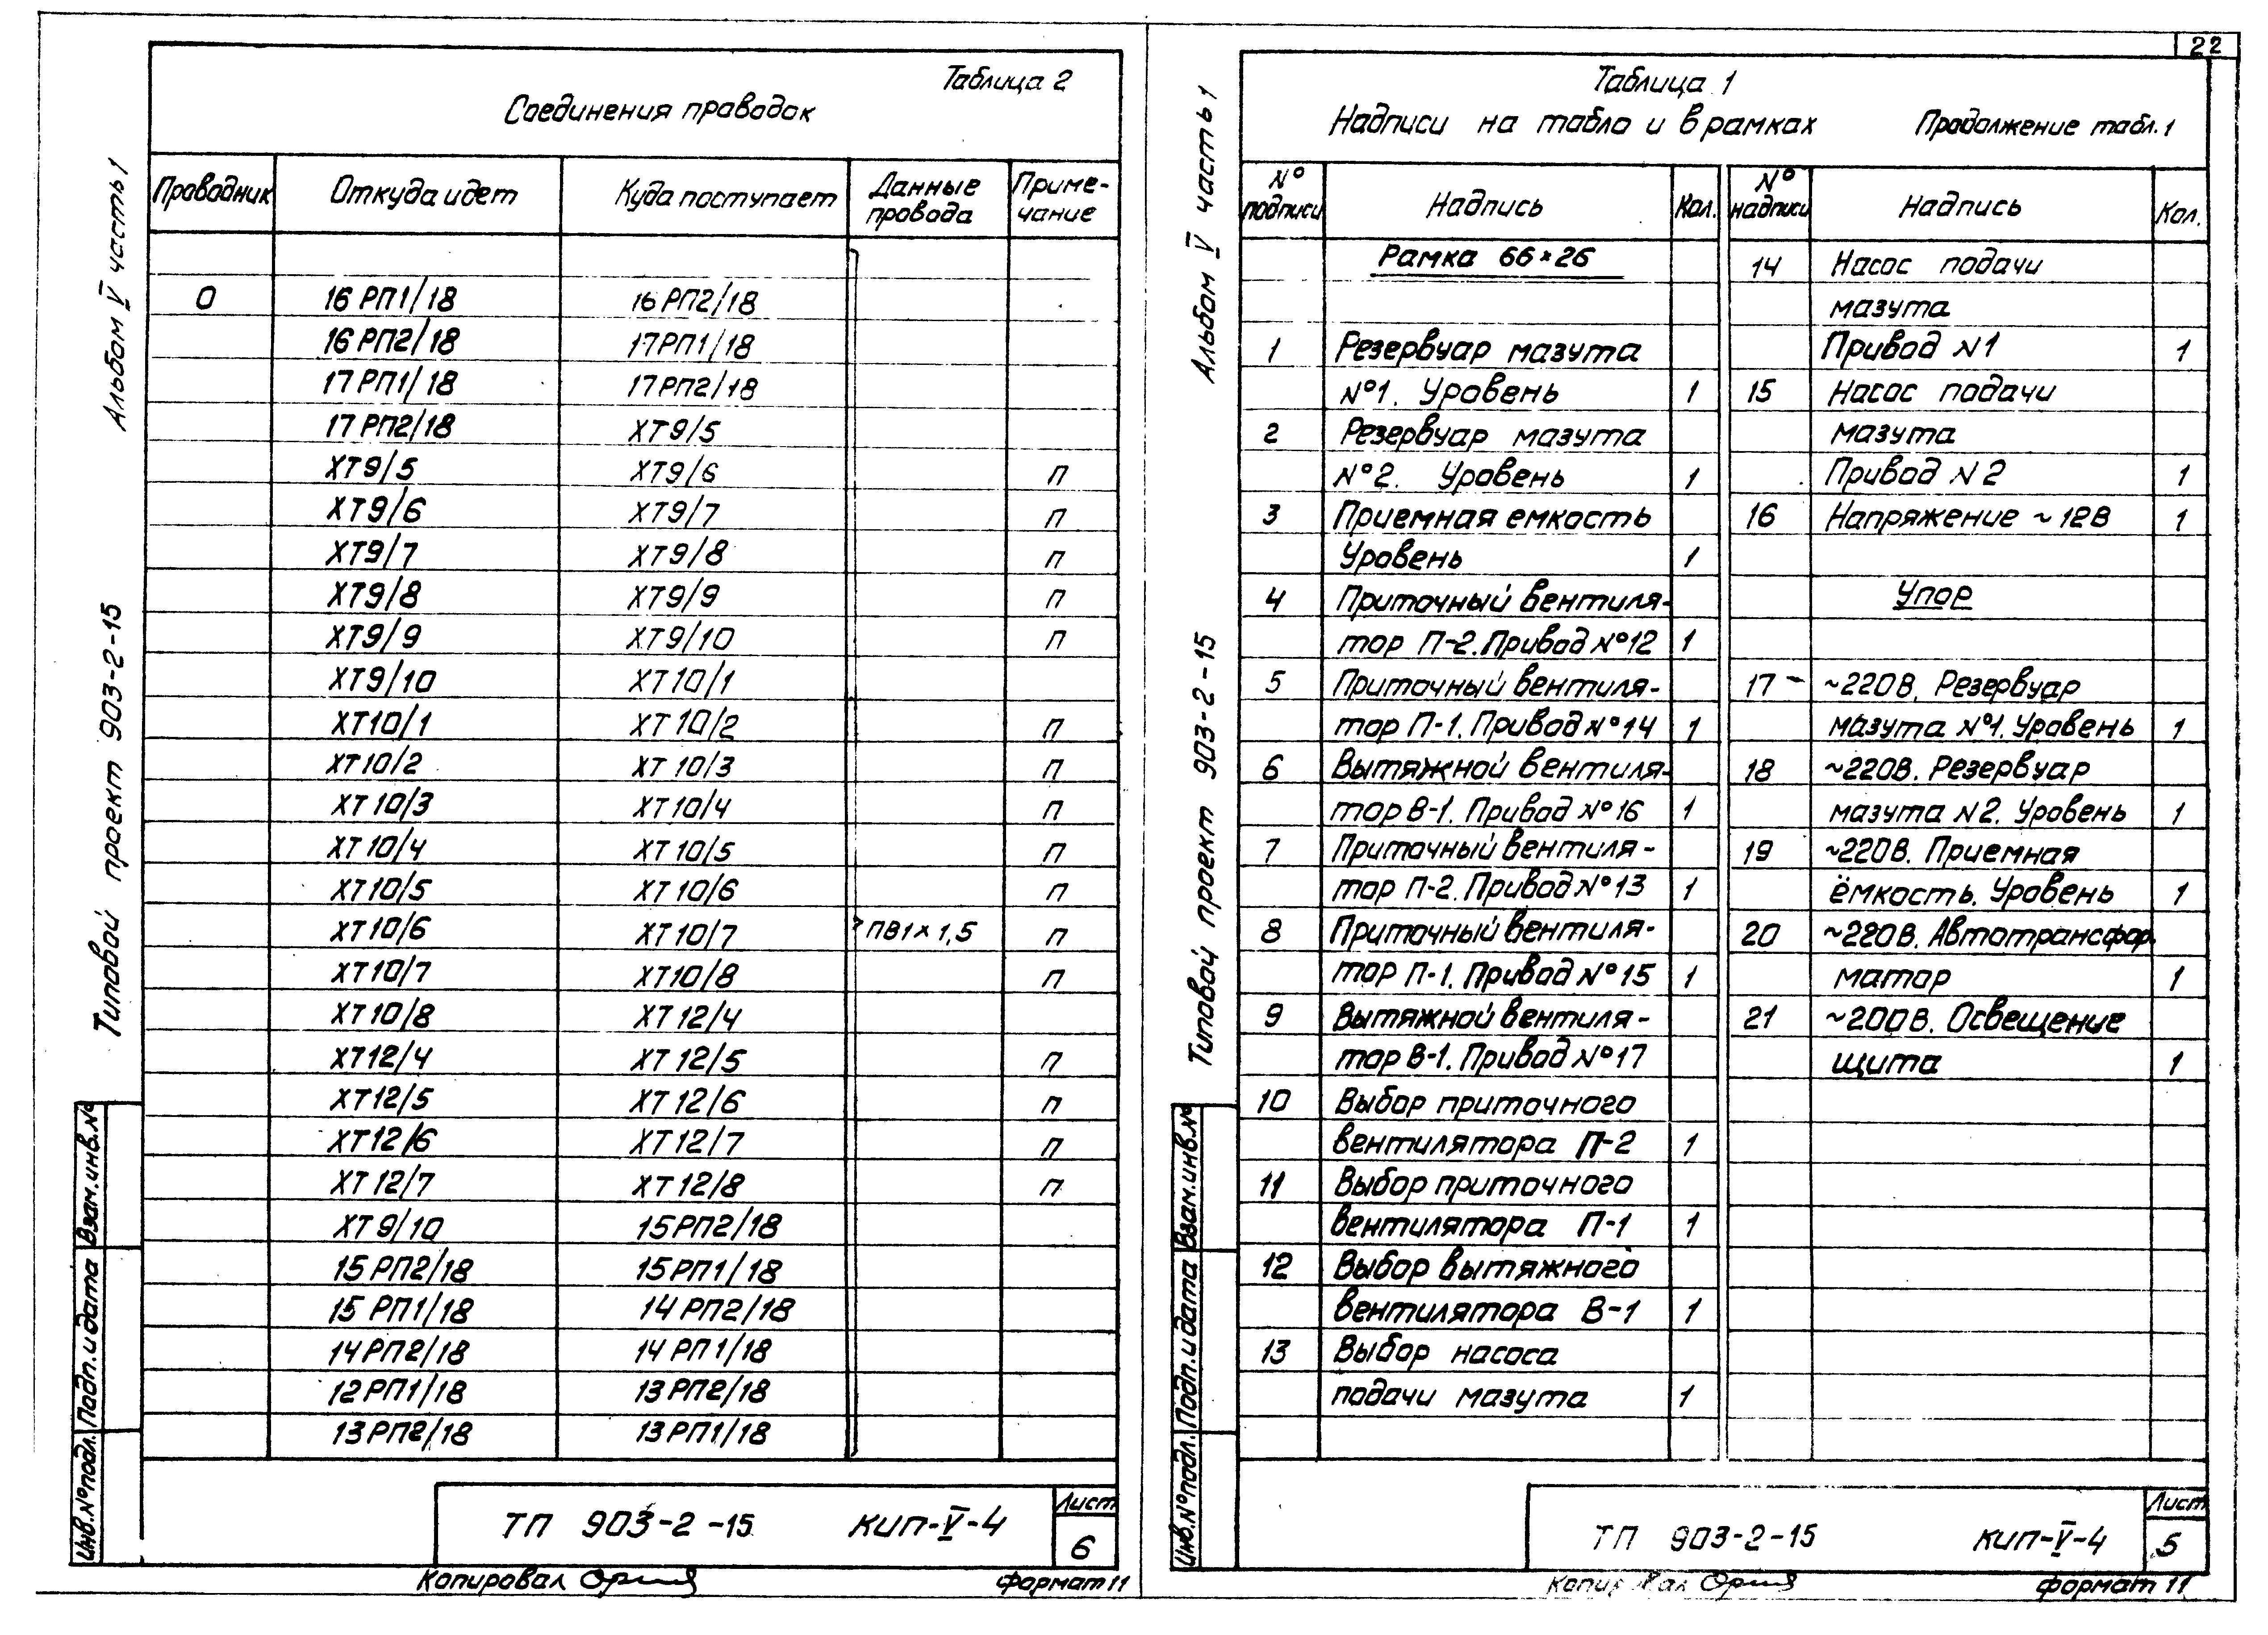 Альбом V часть 1
Типовой проект 903-2-15
Таблица 2
Соединения проводок
Проводник Откуда идет Куда поступает Данные провода Приме-чание
0 16РП1/18 16РП2/18
16РП2/18 17РП1/18
17РП1/18 17РП2/18
17РП2/18 ХТ9/5
ХТ9/5 ХТ9/6 п
ХТ9/6 ХТ9/7 п
ХТ9/7 ХТ9/8 п
ХТ9/8 ХТ9/9 п
ХТ9/9 ХТ9/10 п
ХТ9/10 ХТ10/1
ХТ10/1 ХТ10/2 п
ХТ10/2 ХТ10/3 п
ХТ10/3 ХТ10/4 п
ХТ10/4 ХТ10/5 п
ХТ10/5 ХТ10/6 п
ХТ10/6 ХТ10/7 ПВ1×1,5 п
ХТ10/7 ХТ10/8 п
ХТ10/8 ХТ12/4
ХТ12/4 ХТ12/5 п
ХТ12/5 ХТ12/6 п
ХТ12/6 ХТ12/7 п
ХТ12/7 ХТ12/8 п
ХТ9/10 15РП2/18
15РП2/18 15РП1/18
15РП1/18 14РП2/18
14РП2/18 14РП1/18
12РП1/18 13РП2/18
13РП2/18 13РП1/18
Взам.инв.№
Подп.и дата
Инв.№подл.
ТП 903-2-15 КИП-V-4
Лист
6
Копировал
Формат 11
22
Альбом V часть 1
Типовой проект 903-2-15
Таблица 1
Надписи на табло и в рамках Продолжение табл.1
№ подписи Надпись Кол. № надписи Надпись Кол.
Рамка 66×26
1 Резервуар мазута
№1. Уровень 1
2 Резервуар мазута
№2. Уровень 1
3 Приемная емкость
Уровень 1
4 Приточный вентиля-
тор П-2. Привод №12 1
5 Приточный вентиля-
тор П-1. Привод №14 1
6 Вытяжной вентиля-
тор В-1. Привод №16 1
7 Приточный вентиля-
тор П-2. Привод №13 1
8 Приточный вентиля-
тор П-1. Привод №15 1
9 Вытяжной вентиля-
тор В-1. Привод №17
10 Выбор приточного
вентилятора П-2 1
11 Выбор приточного
вентилятора П-1 1
12 Выбор вытяжного
вентилятора В-1 1
13 Выбор насоса
подачи мазута 1
14 Насос подачи
мазута
Привод N1 1
15 Насос подачи
мазута
Привод N2 1
16 Напряжение ~12В 1
Упор
17 ~220В. Резервуар
мазута №1. Уровень 1
18 ~220В. Резервуар
мазута N2. Уровень 1
19 ~220В. Приемная
ёмкость. Уровень 1
20 ~220В. Автотрансфор-
матор 1
21 ~200В. Освещение
щита 1
Взам.инв.№
Подп.и дата
Инв.№подл.
ТП 903-2-15 КИП-V-4
Лист
5
Копировал
Формат 11